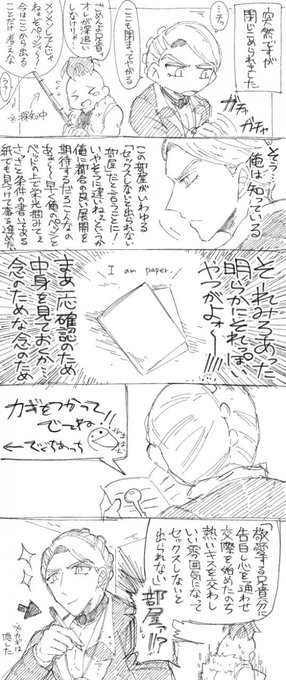 突然ですが
閉じこめられました
ここも閉まってやがる
ガチャ
ガチャ
ごめんよ兄貴…
オレが深追い
しなけりゃ…
メソメソしてんじゃ
ねーぞペッシ…
今はここから出る
ことだけ考えな
ううっ
※探知中
そう…
俺は知っている
この部屋がいわゆる
「セックスしないと出られない
部屋」だということに!
いやそうに違いねぇというか
俺に都合の良い展開を
期待するだろこんなの
あぁ〜早く俺のペッシと
ベッドの上で栄光掴みてぇ
さっさと条件の書いてある
紙でも見つけて事を進め
そーれみろあった
明らかにそれっぽい
やつがよォ〜!!
I am paper.
まあ一応確認のため
中身を見ておくか…
念のためな念のため
カギをつかって
でてね
←でぐちあっち
「敬愛する兄貴分に
告白し心を通わせ
交際を始めたのち
熱いキスを交わし
いい雰囲気になって
セックスしないと
出られない
部屋」!?
※カギは
隠した